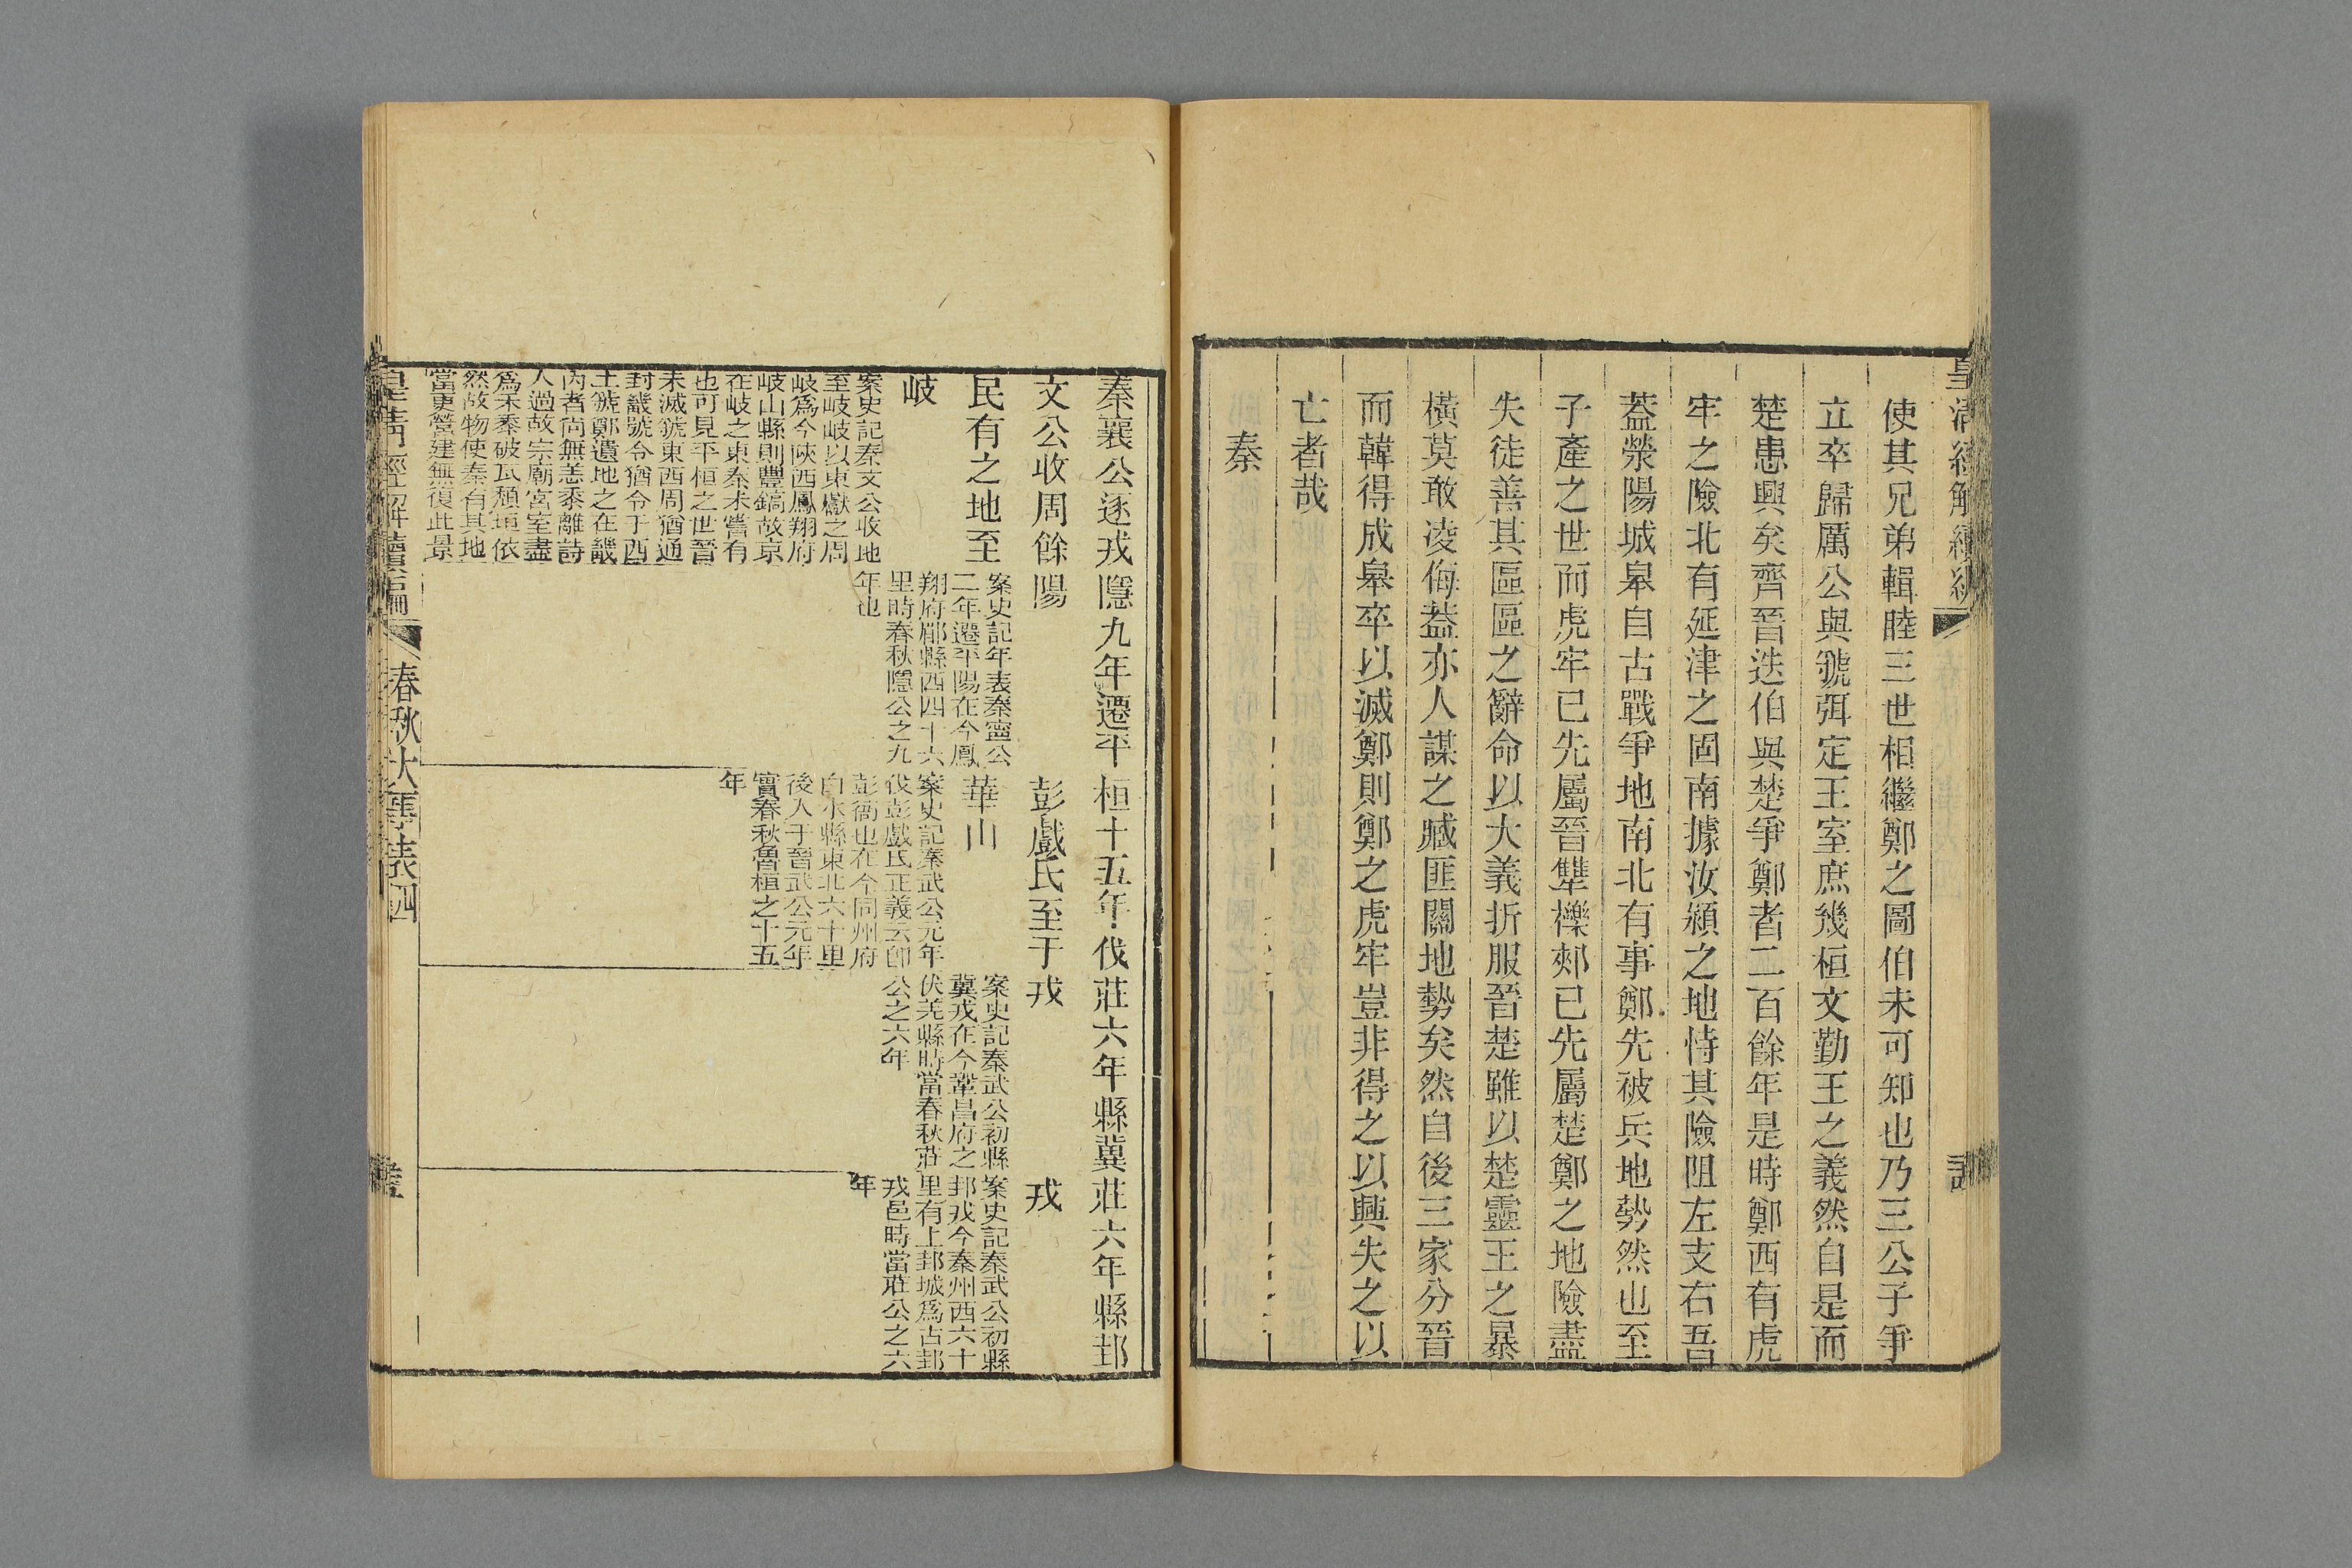 使其兄弟輯睦三世相繼鄭之圖伯未可知也乃三公子爭
立卒歸厲公與虢弭定王室庶幾桓文勤王之義然自是而
楚患興矣齊晉迭伯與楚爭鄭者二百餘年是時鄭西有虎
牢之險北有延津之固南據汝潁之地恃其險阻左支右吾
蓋滎陽城皐自古戰爭地南北有事鄭先被兵地勢然也至
子產之世而虎牢已先屬晉犨櫟郟已先屬楚鄭之地險盡
失徒善其區區之辭命以大義折服晉楚雖以楚靈王之暴
橫莫敢凌侮蓋亦人謀之臧匪關地勢矣然自後三家分晉
而韓得成皐卒以滅鄭則鄭之虎牢豈非得之以興失之以
亡者哉
秦
秦襄公逐戎
文公收周餘
民有之地至
岐
案史記秦文公收地
至岐岐以東獻之周
岐爲今陝西鳳翔府
岐山縣則豐鎬故京
在岐之東秦未嘗有
也可見平桓之世晉
未滅虢東西周猶通
封畿號令猶令于西
土虢鄭遺地之在畿
內者尚無恙黍離詩
人過故宗廟宮室盡
爲禾黍破瓦頹垣依
然故物使秦有其地
當更營建無復此景
隱九年遷平
陽
案史記年表秦寧公
二年遷平陽在今鳳
翔府郿縣西四十六
里時春秋隱公之九
年也
桓十五年伐
彭戲氏至于
華山
案史記秦武公元年
伐彭戲氏正義云卽
彭衙也在今同州府
白水縣東北六十里
後入于晉武公元年
實春秋魯桓之十五
年
莊六年縣冀
戎
案史記秦武公初縣
冀戎在今鞏昌府之
伏羌縣時當春秋莊
公之六年
莊六年縣邽
戎
案史記秦武公初縣
邽戎今秦州西六十
里有上邽城爲古邽
戎邑時當莊公之六
年
皇淸經解續編
春秋大事表四